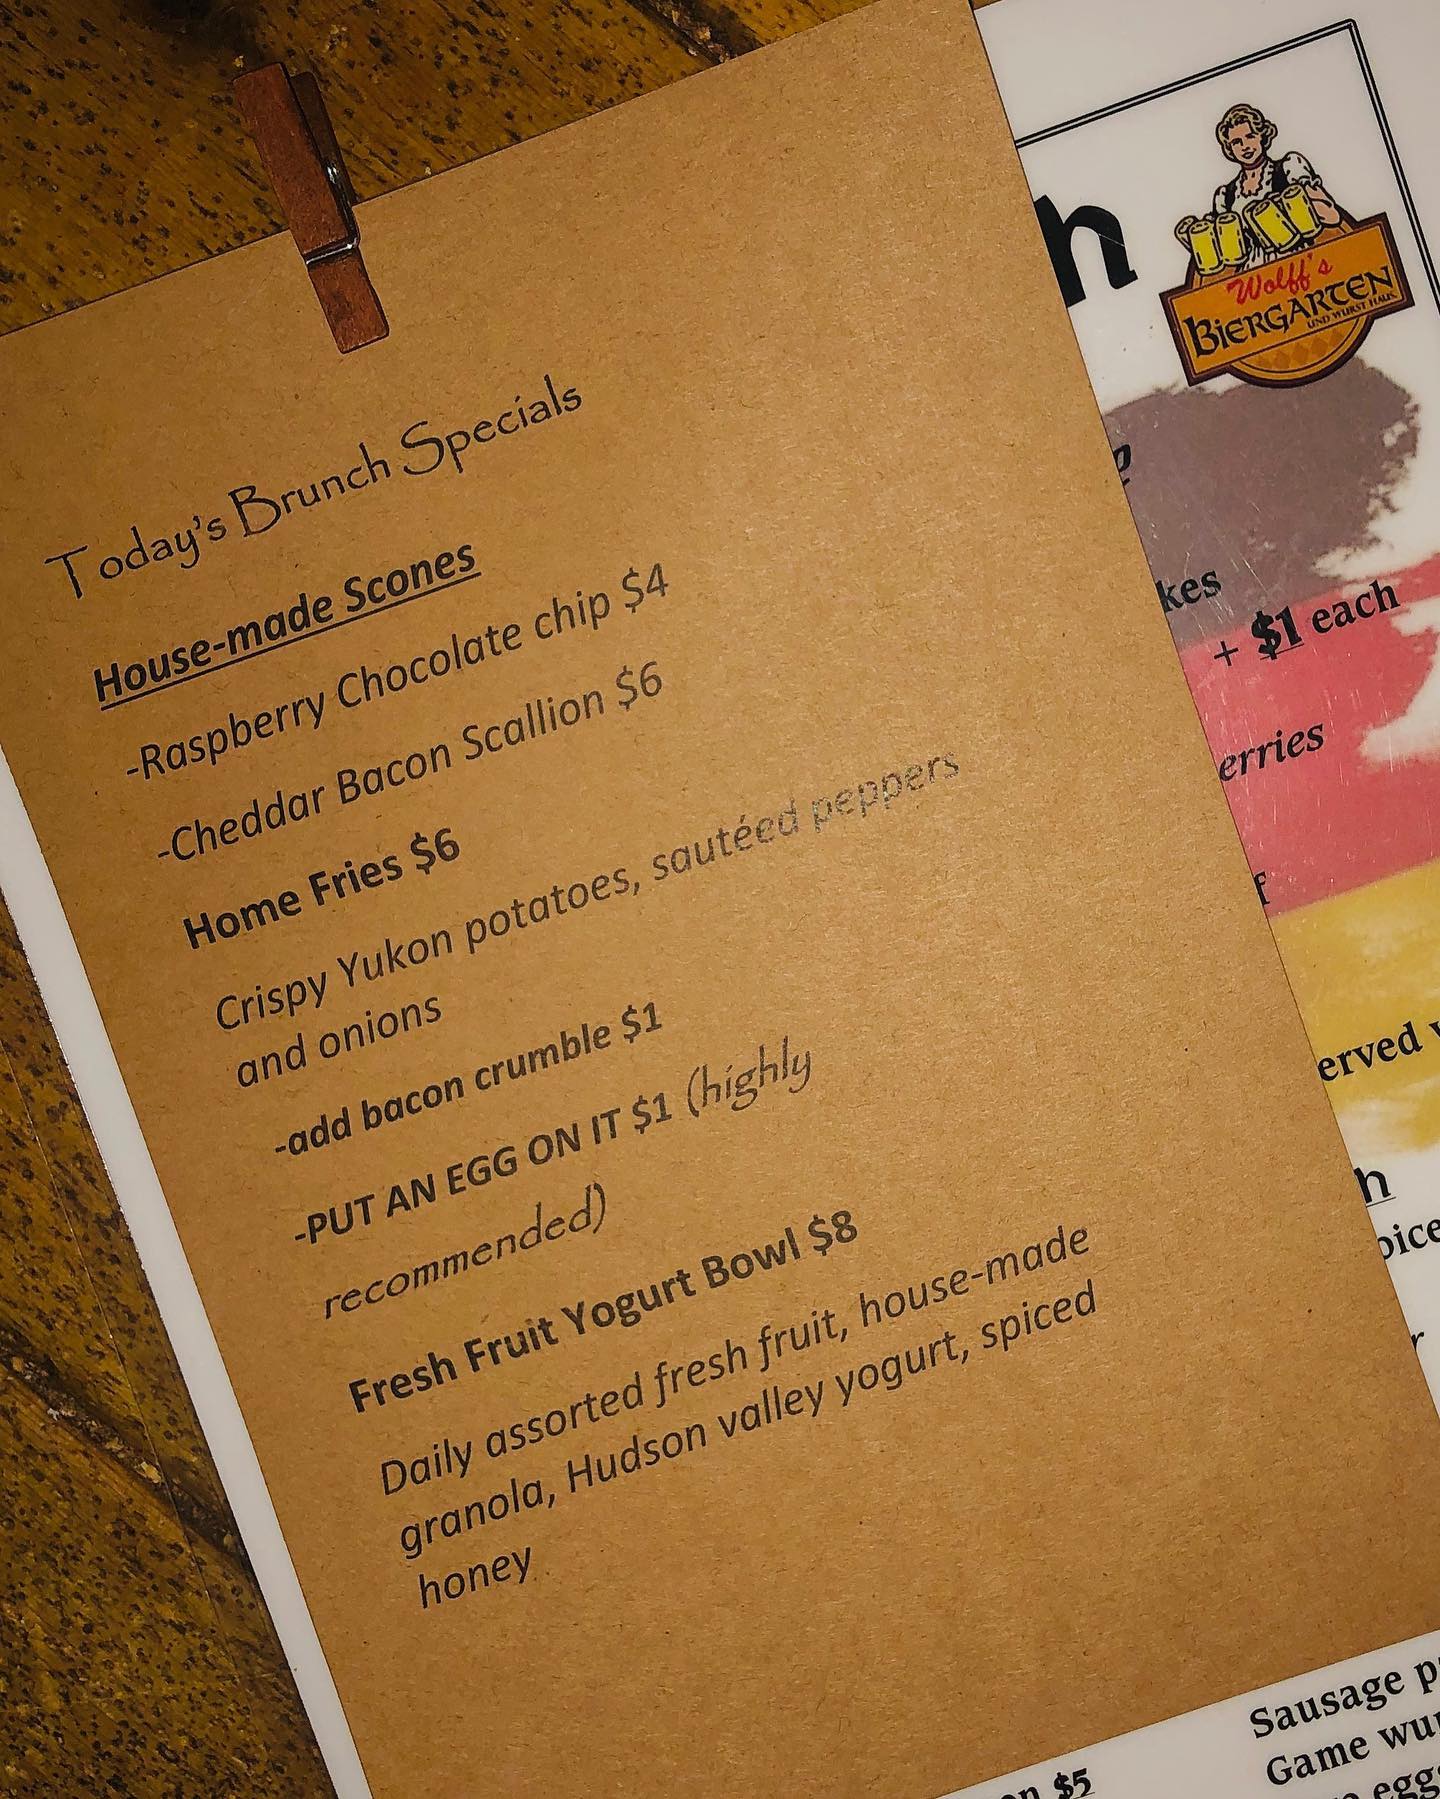 Today's Brunch Specials
House-made Scones
-Raspberry Chocolate chip $4
-Cheddar Bacon Scallion $6
Home Fries $6
Crispy Yukon potatoes, sautéed peppers
and onions
-add bacon crumble $1
-PUT AN EGG ON IT $1 (highly
recommended)
Fresh Fruit Yogurt Bowl $8
Daily assorted fresh fruit, house-made
granola, Hudson valley yogurt, spiced
honey
Wolff's
BiERGARTEN
UND WURST HAUS
+ $1 each
$5
Sausage
Game